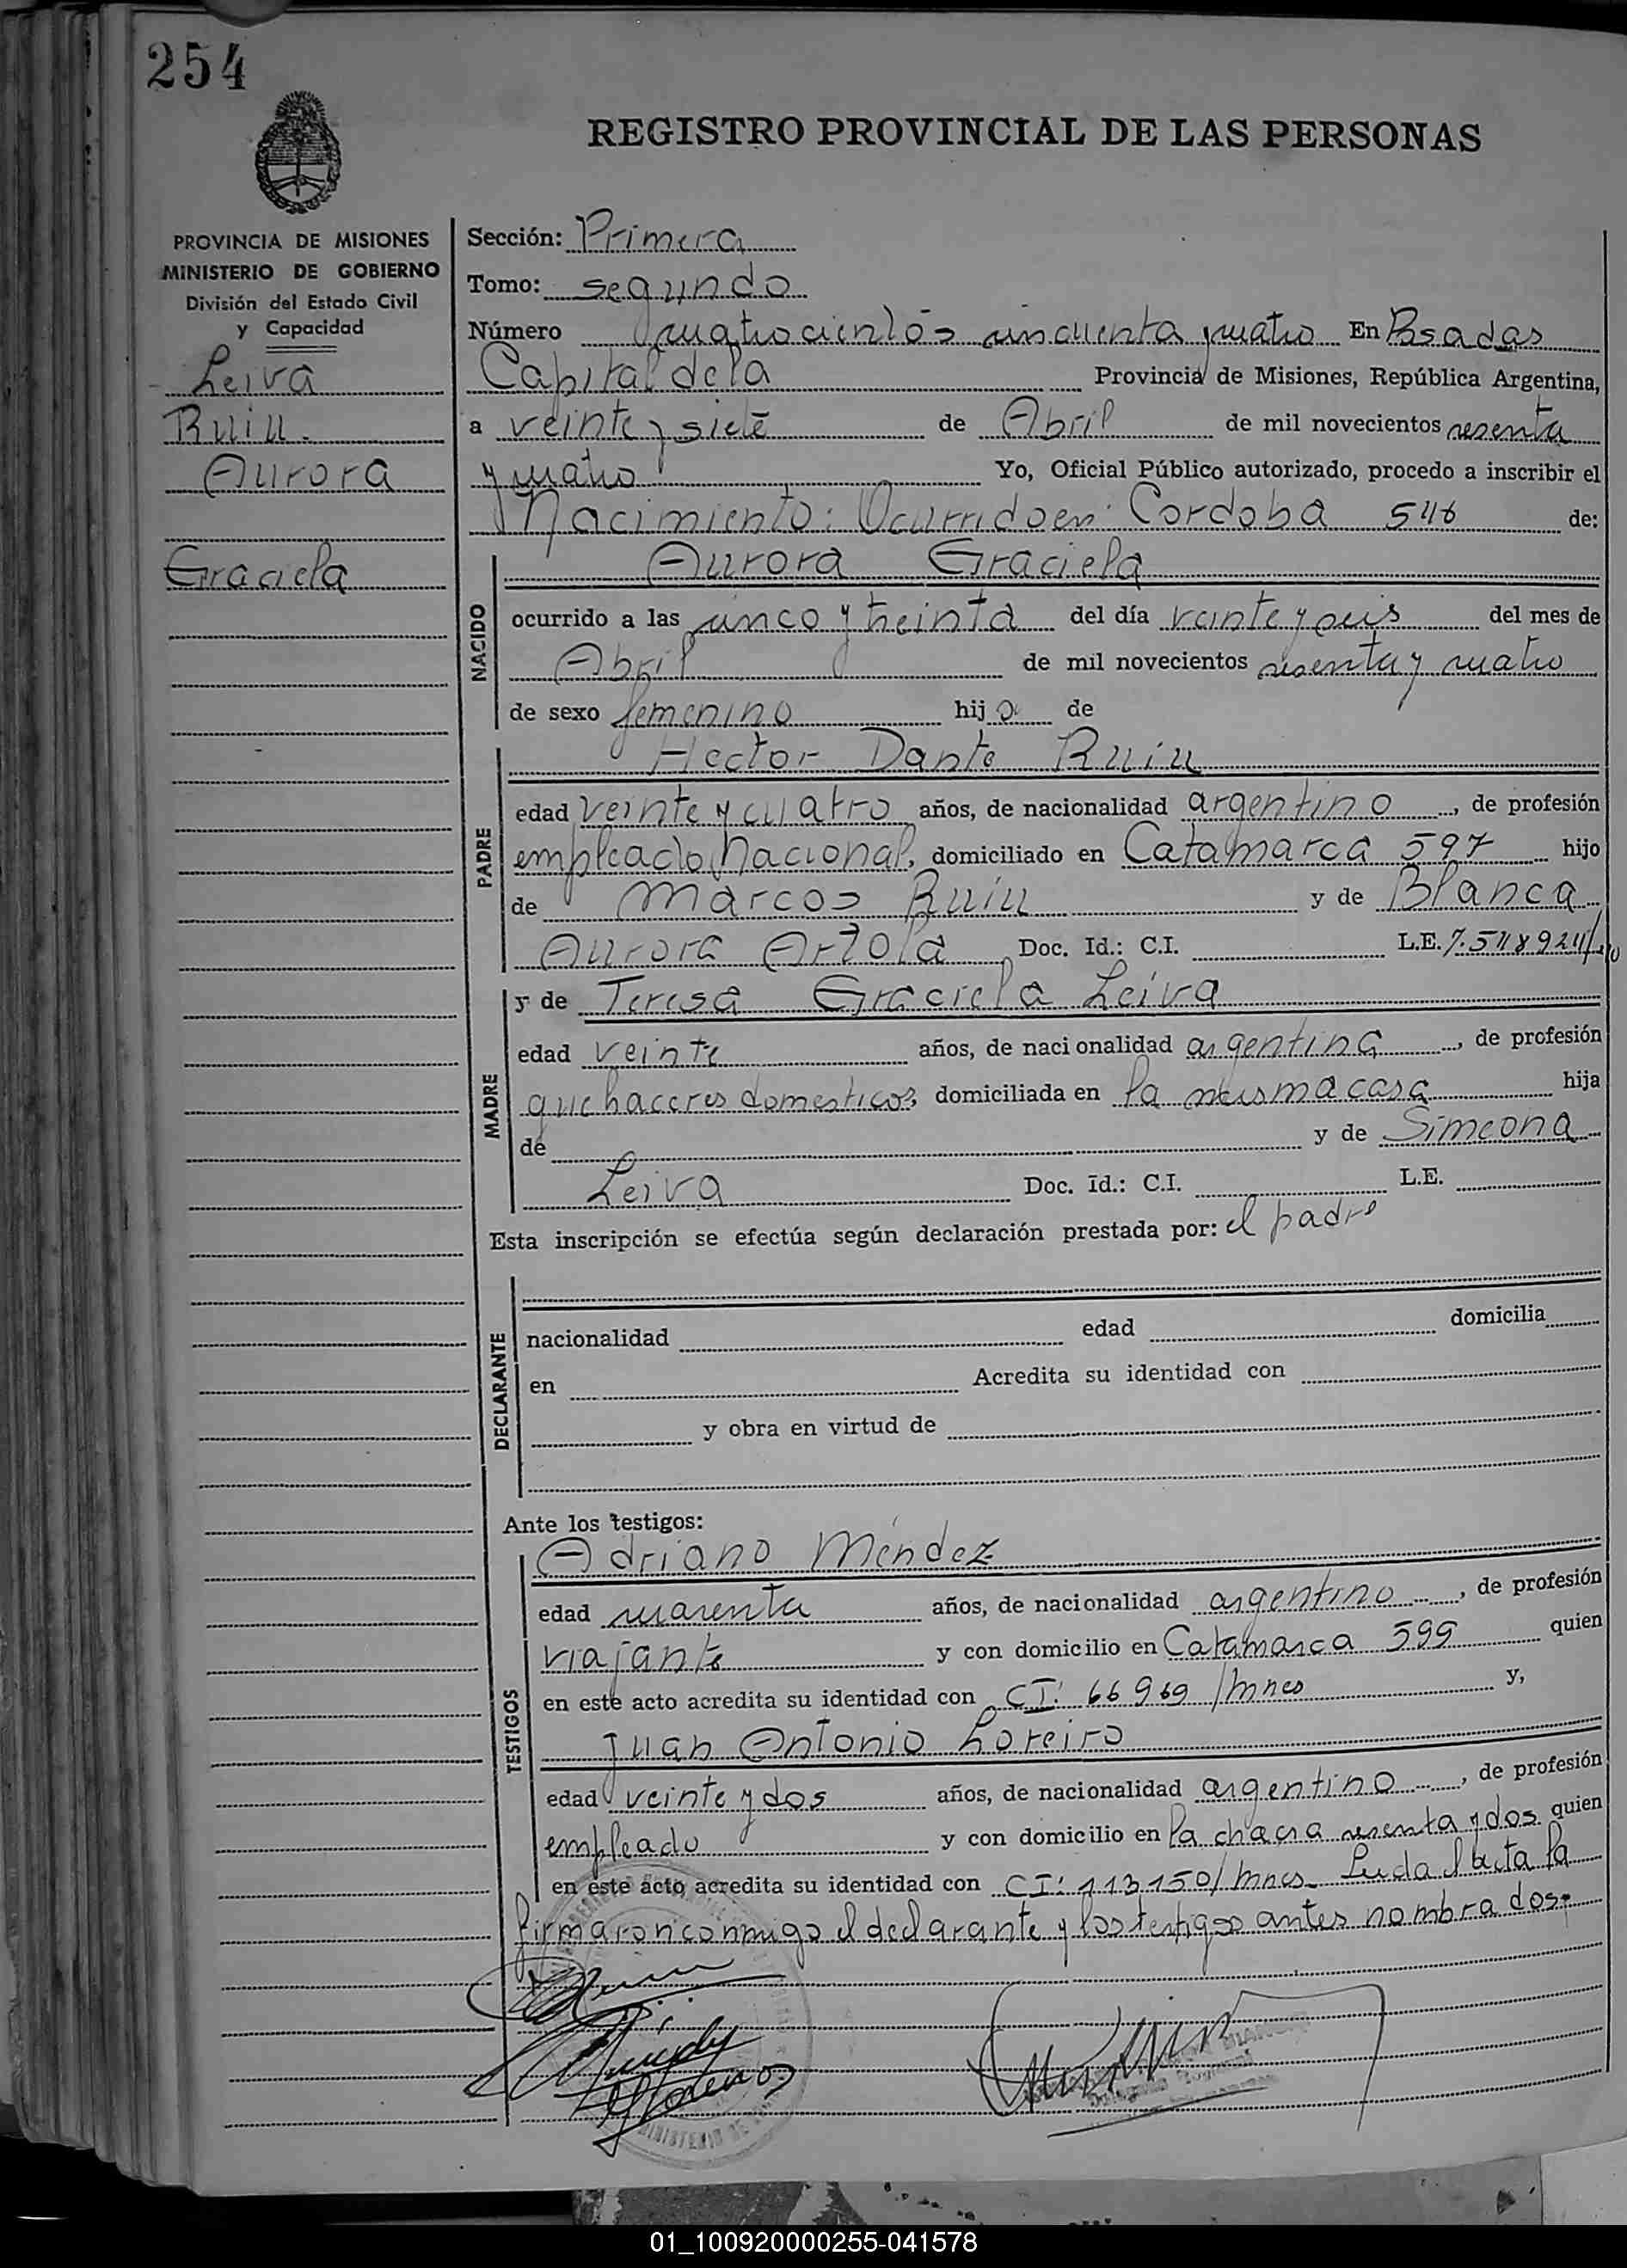 254
REGISTRO PROVINCIAL DE LAS PERSONAS
PROVINCIA DE MISIONES
MINISTERIO DE GOBIERNO
División del Estado Civil
y Capacidad
Leiva
Ruiu.
Aurora
Graciela
Sección: Primera
Tomo: segundo
Número cuatrocientos cincuenta y cuatro En Posadas
Capital de la Provincia de Misiones, República Argentina,
a veinte y siete de Abril de mil novecientos sesenta
y cuatro Yo, Oficial Público autorizado, procedo a inscribir el
Nacimiento: Ocurrido en: Cordoba 546 de:
NACIDO
Aurora Graciela
ocurrido a las cinco y treinta del día veinte y seis del mes de
Abril de mil novecientos sesenta y cuatro
de sexo femenino hij a de
PADRE
Hector Dante Ruiu
edad veinte y cuatro años, de nacionalidad argentino, de profesión
empleado Nacional, domiciliado en Catamarca 597 hijo
de Marcos Ruiu y de Blanca
Aurora Artola Doc. Id.: C.I. L.E. 7.548924
MADRE
y de Teresa Graciela Leiva
edad veinte años, de nacionalidad argentina, de profesión
quehaceres domesticos, domiciliada en la misma casa hija
de y de Simeona
Leiva Doc. Id.: C.I. L.E.
Esta inscripción se efectúa según declaración prestada por: el padre
DECLARANTE
nacionalidad edad domicilia
en Acredita su identidad con
y obra en virtud de
Ante los testigos:
TESTIGOS
Adriano Méndez
edad cuarenta años, de nacionalidad argentino, de profesión
viajante y con domicilio en Catamarca 599 quien
en este acto acredita su identidad con CI: 66969/Mnes y,
Juan Antonio Loreiro
edad veinte y dos años, de nacionalidad argentino, de profesión
empleado y con domicilio en la chacra sesenta y dos quien
en este acto acredita su identidad con CI: 113,150/Mnes. Leida el acta la
firmaron conmigo el declarante y los testigos antes nombrados.-
01_100920000255-041578